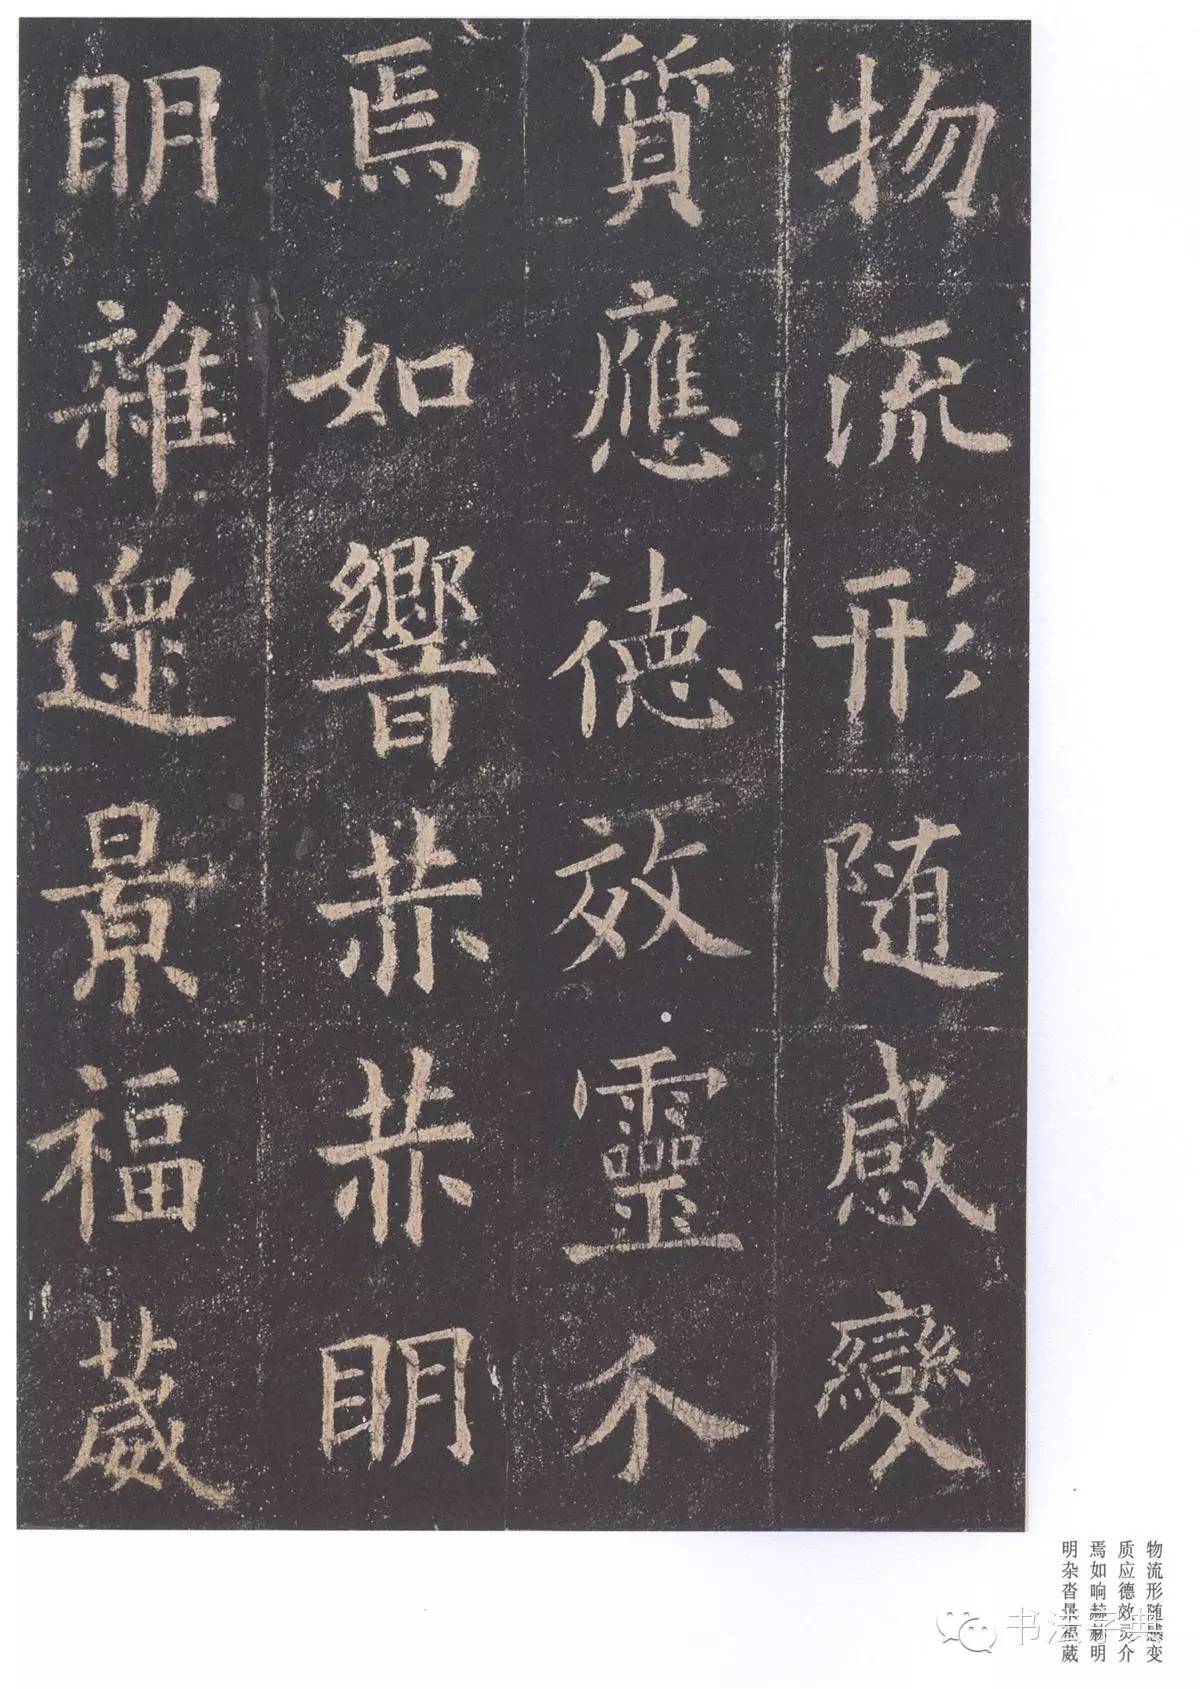 物流形随感變
質應德效靈介
焉如響赫赫明
明雜遝景福葳
物流形随感变
质应德效灵介
焉如响赫赫明
明杂沓景福葳
书法字典